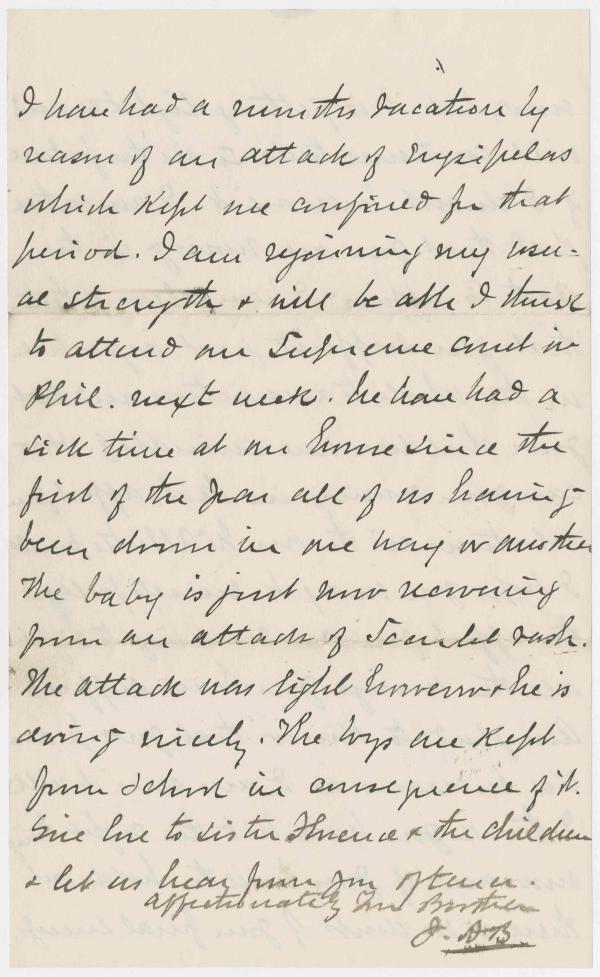 I have had a months vacation by
reason of an attack of Erysipelas
which kept me confined for that
period. I am regaining my usu-
al strength & will be able I think
to attend our Supreme court in
Phil. next week. We have had a
sick time at our house since the
first of the year all of us having
been down in one way or another
The baby is just now recovering
from an attack of Scarlet rash.
The attack was light however & he is
doing nicely. The boys are kept
from School in consequence of it.
Give love to sister Florence & the children
& let us hear from you oftener.
affectionately Your Brother
J. A. B